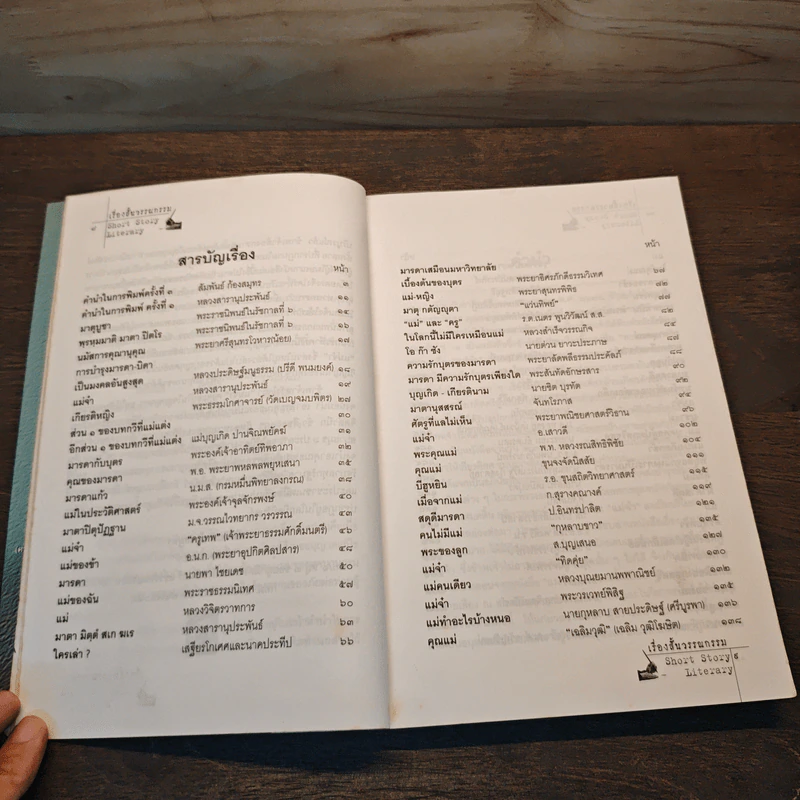 ๘ เรื่องสั้นวรรณกรรม
Short Story
Literary
สารบัญเรื่อง
หน้า
คำนำในการพิมพ์ครั้งที่ ๓ สัมพันธ์ ก้องสมุทร ๓
คำนำในการพิมพ์ ครั้งที่ ๑ หลวงสารานุประพันธ์ ๑๑
มาตูบูชา พระราชนิพนธ์ในรัชกาลที่ ๖ ๑๔
พฺรหฺมมาติ มาตา ปิตโร พระราชนิพนธ์ในรัชกาลที่ ๖ ๑๖
นมัสการคุณานุคุณ พระยาศรีสุนทรโวหาร(น้อย) ๑๗
การบำรุงมารดา-บิดา
เป็นมงคลอันสูงสุด หลวงประดิษฐ์มนูธรรม (ปรีดี พนมยงค์) ๑๘
แม่จ๋า หลวงสารานุประพันธ์ ๑๙
เกียรติหญิง พระธรรมโกศาจารย์ (วัดเบญจมบพิตร) ๒๗
ส่วน ๑ ของบทกวีที่แม่แต่ง ๓๐
อีกส่วน ๑ ของบทกวีที่แม่แต่ง แม่บุญเกิด ปานจิณพยัคฆ์ ๓๑
มารดากับบุตร พระองค์เจ้าอาทิตย์ทิพอาภา ๓๒
คุณของมารดา พ.อ. พระยาพหลพลพยุหเสนา ๓๕
มารดาแก้ว น.ม.ส. (กรมหมื่นพิทยาลงกรณ) ๓๘
แม่ในประวัติศาสตร์ พระองค์เจ้าจุลจักรพงษ์ ๔๐
มาตาปิตุปัฏฐาน ม.จ.วรรณไวทยากร วรวรรณ ๔๓
แม่จ๋า "ครูเทพ" (เจ้าพระยาธรรมศักดิ์มนตรี) ๔๖
แม่ของข้า อ.น.ก. (พระยาอุปกิตศิลปสาร) ๔๘
มารดา นายพา ไชยเดช ๕๐
แม่ของฉัน พระราชธรรมนิเทศ ๕๗
แม่ หลวงวิจิตรวาทการ ๖๐
มาตา มิตฺตํ สเก ฆเร หลวงสารานุประพันธ์ ๖๓
ใครเล่า ? เสฐียรโกเศศและนาคะประทีป ๖๖
หน้า
มารดาเสมือนมหาวิทยาลัย
เบื้องต้นของบุตร พระยาอิศรภักดีธรรมวิเทศ ๖๗
แม่-หญิง พระยาสุนทรพิพิธ ๗๒
มาตุ กตัญญุตา "แว่นทิพย์" ๗๗
"แม่" และ "ครู" ร.ต.เนตร พูนวิวัฒน์ ส.ส. ๘๒
ในโลกนี้ไม่มีใครเหมือนแม่ หลวงสำเร็จวรรณกิจ ๘๔
โอ ก๊า ซัง นายด่วน ยาวะประภาษ ๘๗
ความรักบุตรของมารดา พระยาลัดพลีธรรมประคัลภ์ ๘๘
มารดา มีความรักบุตรเพียงใด พระสันทัดอักษรสาร ๙๐
บุญเกิด - เกียรตินาม นายชิต บุรทัต ๙๒
มาตานุสสรณ์ จันทโรภาส ๙๔
ศัตรูที่แลไม่เห็น พระยาพณิชยศาสตร์วิธาน ๙๖
แม่จ๋า อ.เสาวดี ๑๐๒
พระคุณแม่ พ.ท. หลวงรณสิทธิพิชัย ๑๐๔
คุณแม่ ขุนจงจัดนิสสัย ๑๑๑
บีฮูหยิน ร.อ. ขุนสถิตวิทยาศาสตร์ ๑๑๕
เมื่อจากแม่ ก.สุรางคณางค์ ๑๑๙
สดุดีมารดา ป.อินทรปาลิต ๑๒๑
คนไม่มีแม่ "กุหลาบขาว" ๑๒๕
พระของลูก ส.บุญเสนอ ๑๒๗
แม่จ๋า "ทิดคุ่ย" ๑๓๐
แม่คนเดียว หลวงบุณยมานพพาณิชย์ ๑๓๒
แม่จ๋า พระวรเวทย์พิสิฐ ๑๓๕
แม่ทำอะไรบ้างหนอ นายกุหลาบ สายประดิษฐ์ (ศรีบูรพา) ๑๓๖
คุณแม่ "เฉลิมวุฒิ" (เฉลิม วุฒิโฆษิต) ๑๓๘
เรื่องสั้นวรรณกรรม
Short Story ๙
Literary